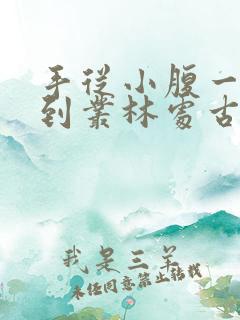 手从小腹一
到丛林处古
我是三羊
未经同意禁止转载